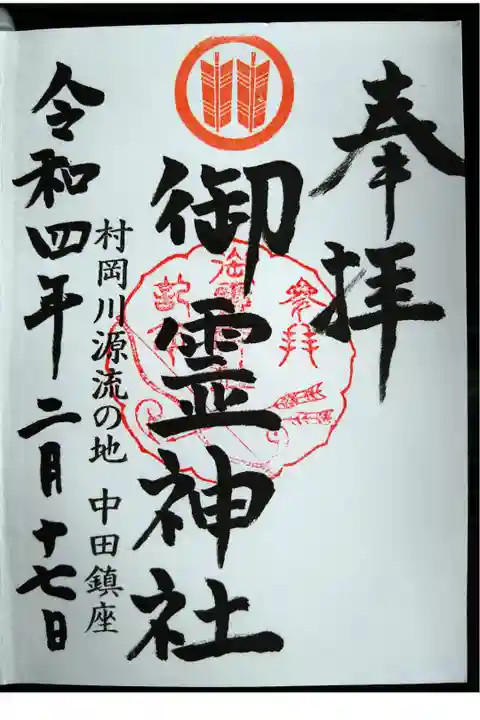 奉拝
御霊神社
参拝
村岡川源流の地 中田鎮座
令和四年二月十七日